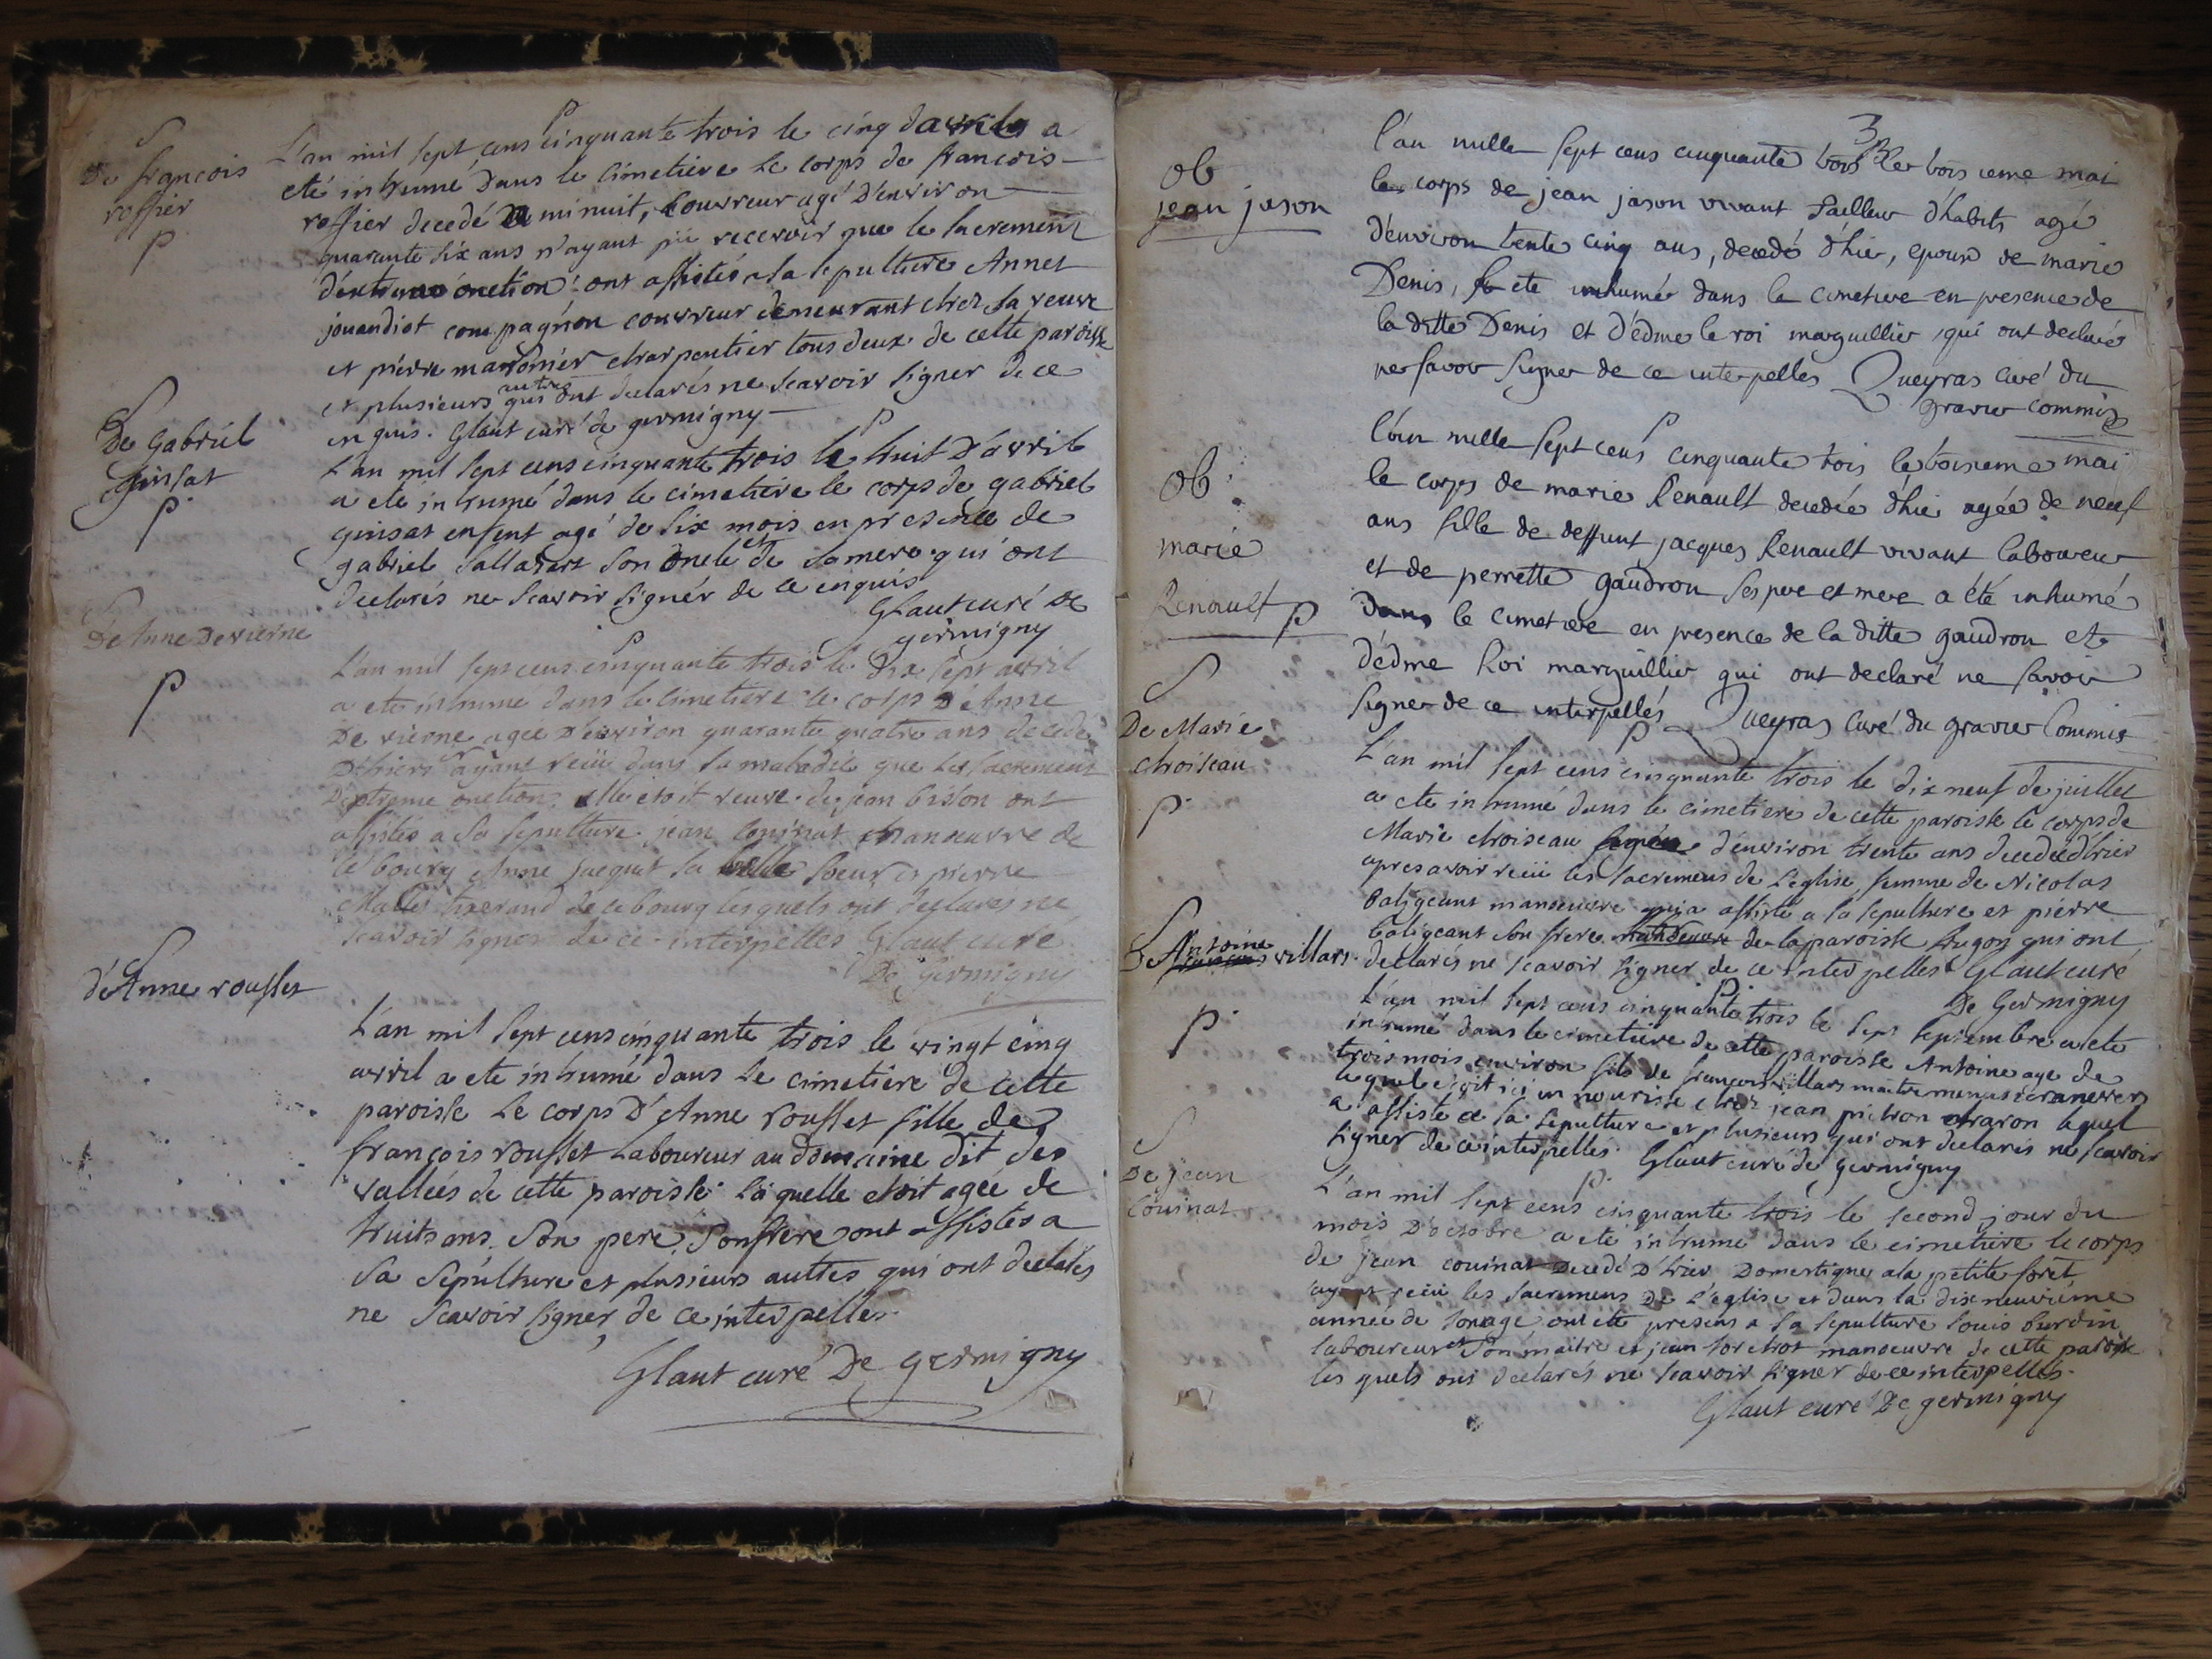 S
De françois
roffier
p
p
L'an mil sept cens cinquante trois le cinq davrils a
eté inhumé dans le cimetiere le corps de françois
roffier decedé a minuit, couvreur agé d'environ
quarante six ans n'ayant pü recevoir que le sacrement
d'extreme onction: ont assistés a sa sepulture Annet
jouandiot compagnon couvreur demeurant chez la veuve
et piérre charpentier tous deux de cette paroisse
et plusieurs autres qui ont declarés ne scavoir signer de ce
in quis. Glaut curé de germigny
S
De Gabriel
guisat
p
p
L'an mil sept cens cinquante trois le huit d'avril
a eté inhumé dans le cimetiere le corps de gabriel
guisat enfent agé de six mois en presence de
gabriel son oncle et de sa mere qui ont
declarés ne scavoir signér de ce enquis
Glaut curé de
germigny
S
De Anne Devierne
p
p
L'an mil sept cens cinquante trois le dix sept avril
a eté inhumé dans le cimetiere le corps d'Anne
De vierne agée d'environ quarante quatre ans decedé
d'hiers ayant reüe dans sa maladie que les sacremens
d'extreme onction, elle etoit veuve de jean bisson ont
assistés a sa sepulture jean couinat manoeuvre de
ce bourg Anne jacquet sa belle soeur et pierre
tixerand de ce bourg lesquels ont declarés ne
scavoir signer de ce interpellés Glaut curé
De Germigny
S
d'Anne rousset
L'an mil sept cens cinquante trois le vingt cinq
avril a eté inhumé dans le cimetiére de cette
paroisse le corps d'Anne rousset fille de
françois rousset laboureur au domaine dit des
vallées de cette paroisse laquelle etoit agée de
huits ans. Son pere, son frere ont assistés a
sa sepulture et plusieurs autres qui ont declarés
ne scavoir signer de ce interpellés.
Glaut curé De germigny
3
ob
jean jason
l'an mille sept cens cinquante trois le trois ieme mai
le corps de jean jason vivant tailleur d'habits agé
d'environ trente cinq ans, decedé d'hier, epoux de marie
Denis, a ete inhumé dans le cimetiere en presence de
la ditte Denis et d'edme le roi marguillier qui ont declaré
ne savoir signer de ce interpellés Queyras curé du
gravier commis
ob
marie
Renault
p
p
l'an mille sept cens cinquante trois le troisieme mai
le corps de marie Renault decedée d'hier agée de neuf
ans fille de deffunt jacques Renault vivant laboureur
et de perrette gaudron ses pere et mere a été inhumé
dans le cimetiere en presence de la ditte gaudron et
d'edme Roi marguillier qui ont declaré ne savoir
signer de ce interpellés Queyras curé du gravier Commis
S
De Marie
choiseau
p
p
L'an mil sept cens cinquante trois le dix neuf de juillet
a ete inhumé dans le cimetiere de cette paroisse le corps de
Marie choiseau agée d'environ trente ans decedée d'hier
apres avoir reüe les sacremens de l'église, femme de Nicolas
baligeant manoeuvre qui a assisté a sa sepulture et piérre
baligeant son frere manoeuvre de la paroisse qui ont
declarés ne scavoir signer de ce interpellés Glaut curé
De Germigny
S
D'Antoine
villars
p
p
L'an mil sept cens cinquante trois le sept septembre a eté
inhumé dans le cimetiere de cette paroisse Antoine agé de
trois mois environ fils de françois villars maitre
lequel etoit ici en nourisse chez jean lequel
a assisté a sa sepulture et plusieurs qui ont declarés ne scavoir
signer de ce interpellés Glaut curé de germigny
S
De jean
Couinat
p
L'an mil sept cens cinquante trois le second jour du
mois d'octobre a eté inhumé dans le cimetiere le corps
de jean couinat decedé d'hier domestique a la petite foret
ayant reüe les sacremens de l'église et dans la dix neuviéme
année de son age ont eté presens a sa sepulture Louis burdin
laboureur son maitre et jean manoeuvre de cette paroisse
les quels ont declarés ne scavoir signer de ce interpellés.
Glaut curé De germigny